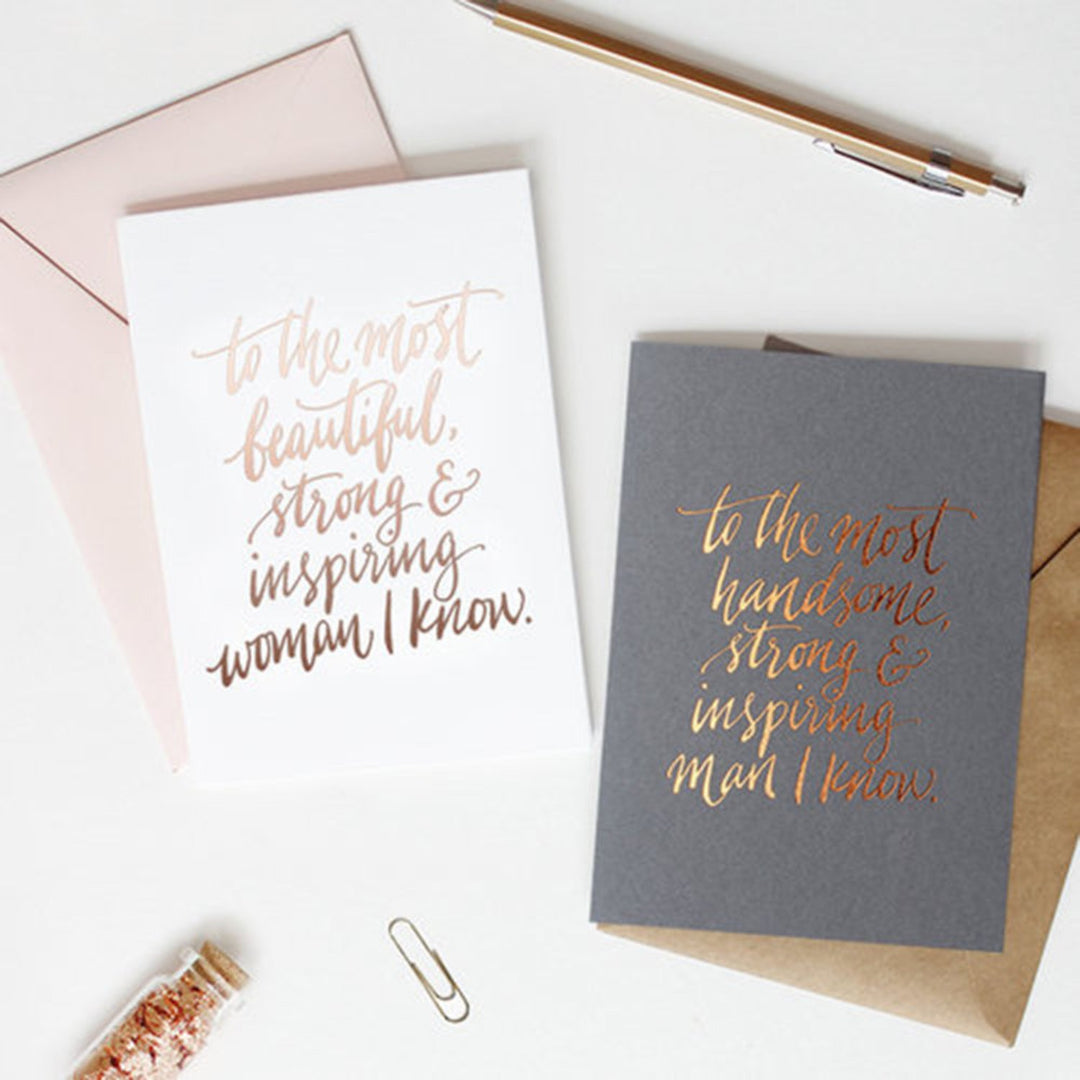 to the most
beautiful,
strong &
inspiring
woman I know.
to the most
handsome,
strong &
inspiring
man I know.